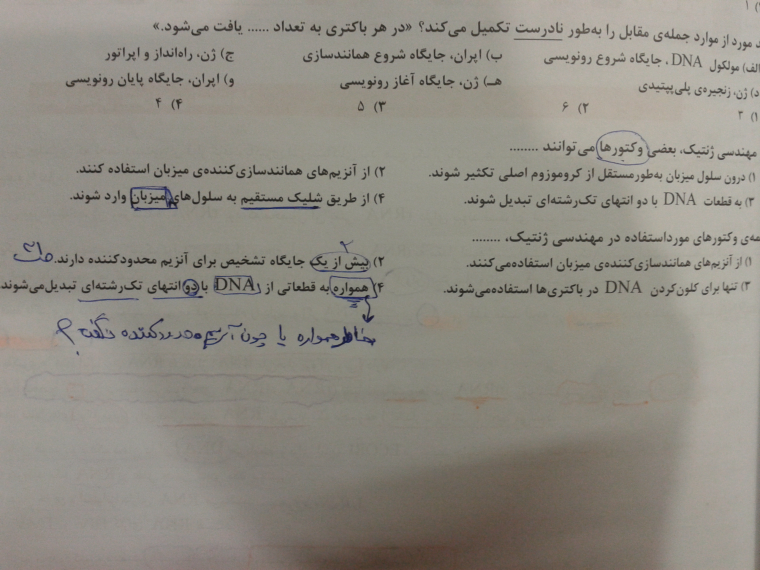 د مورد از موارد جمله‌ی مقابل را به‌طور نادرست تکمیل می‌کند؟ «در هر باکتری به تعداد ...... یافت می‌شود.»
الف) مولکول DNA، جایگاه شروع رونویسی ب) اپران، جایگاه شروع همانندسازی ج) ژن، راه‌انداز و اپراتور
د) ژن، زنجیره‌ی پلی‌پپتیدی هـ) ژن، جایگاه آغاز رونویسی و) اپران، جایگاه پایان رونویسی
۱) ۳ ۲) ۶ ۳) ۵ ۴) ۴
مهندسی ژنتیک، بعضی وکتورها می‌توانند ........
۱) درون سلول میزبان به‌طورمستقل از کروموزوم اصلی تکثیر شوند. ۲) از آنزیم‌های همانندسازی‌کننده‌ی میزبان استفاده کنند.
۳) به قطعات DNA با دو انتهای تک‌رشته‌ای تبدیل شوند. ۴) از طریق شلیک مستقیم به سلول‌های میزبان وارد شوند.
مه‌ی وکتورهای مورداستفاده در مهندسی ژنتیک، ........
۱) از آنزیم‌های همانندسازی‌کننده‌ی میزبان استفاده‌می‌کنند. ۲) بیش از یک جایگاه تشخیص برای آنزیم محدودکننده دارند.
۳) تنها برای کلون‌کردن DNA در باکتری‌ها استفاده‌می‌شوند. ۴) همواره به قطعاتی از DNA با دو انتهای تک‌رشته‌ای تبدیل‌می‌شوند.
بخاطر همواره یا چون آنزیم محدودکننده نگفته؟